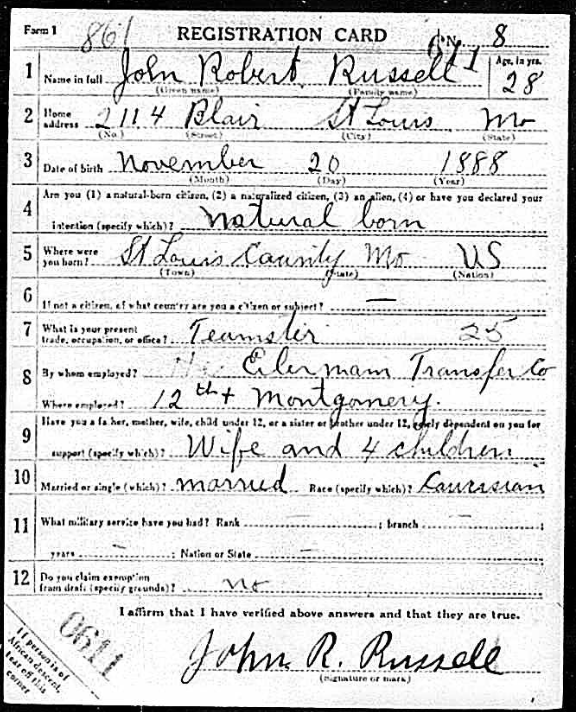 Form 1 861 REGISTRATION CARD No. 8
1 Name in full John Robert Russell Age, in yrs. 28
(Given name) (Family name)
2 Home address 2114 Blair St Louis Mo
(No.) (Street) (City) (State)
3 Date of birth November 20 1888
(Month) (Day) (Year)
4 Are you (1) a natural-born citizen, (2) a naturalized citizen, (3) an alien, (4) or have you declared your
intention (specify which)? natural born
5 Where were you born? St Louis County Mo US
(Town) (State) (Nation)
6 If not a citizen, of what country are you a citizen or subject? —
7 What is your present trade, occupation, or office? Teamster 25
8 By whom employed? Eilermann Transfer Co
Where employed? 12th + Montgomery.
9 Have you a father, mother, wife, child under 12, or a sister or brother under 12, solely dependent on you for
support (specify which)? Wife and 4 children
10 Married or single (which)? married Race (specify which)? Caucasian
11 What military service have you had? Rank — ; branch — ;
years — ; Nation or State —
12 Do you claim exemption from draft (specify grounds)? no
I affirm that I have verified above answers and that they are true.
John R. Russell
(Signature or mark)
If person is of African descent, tear off this corner
0611